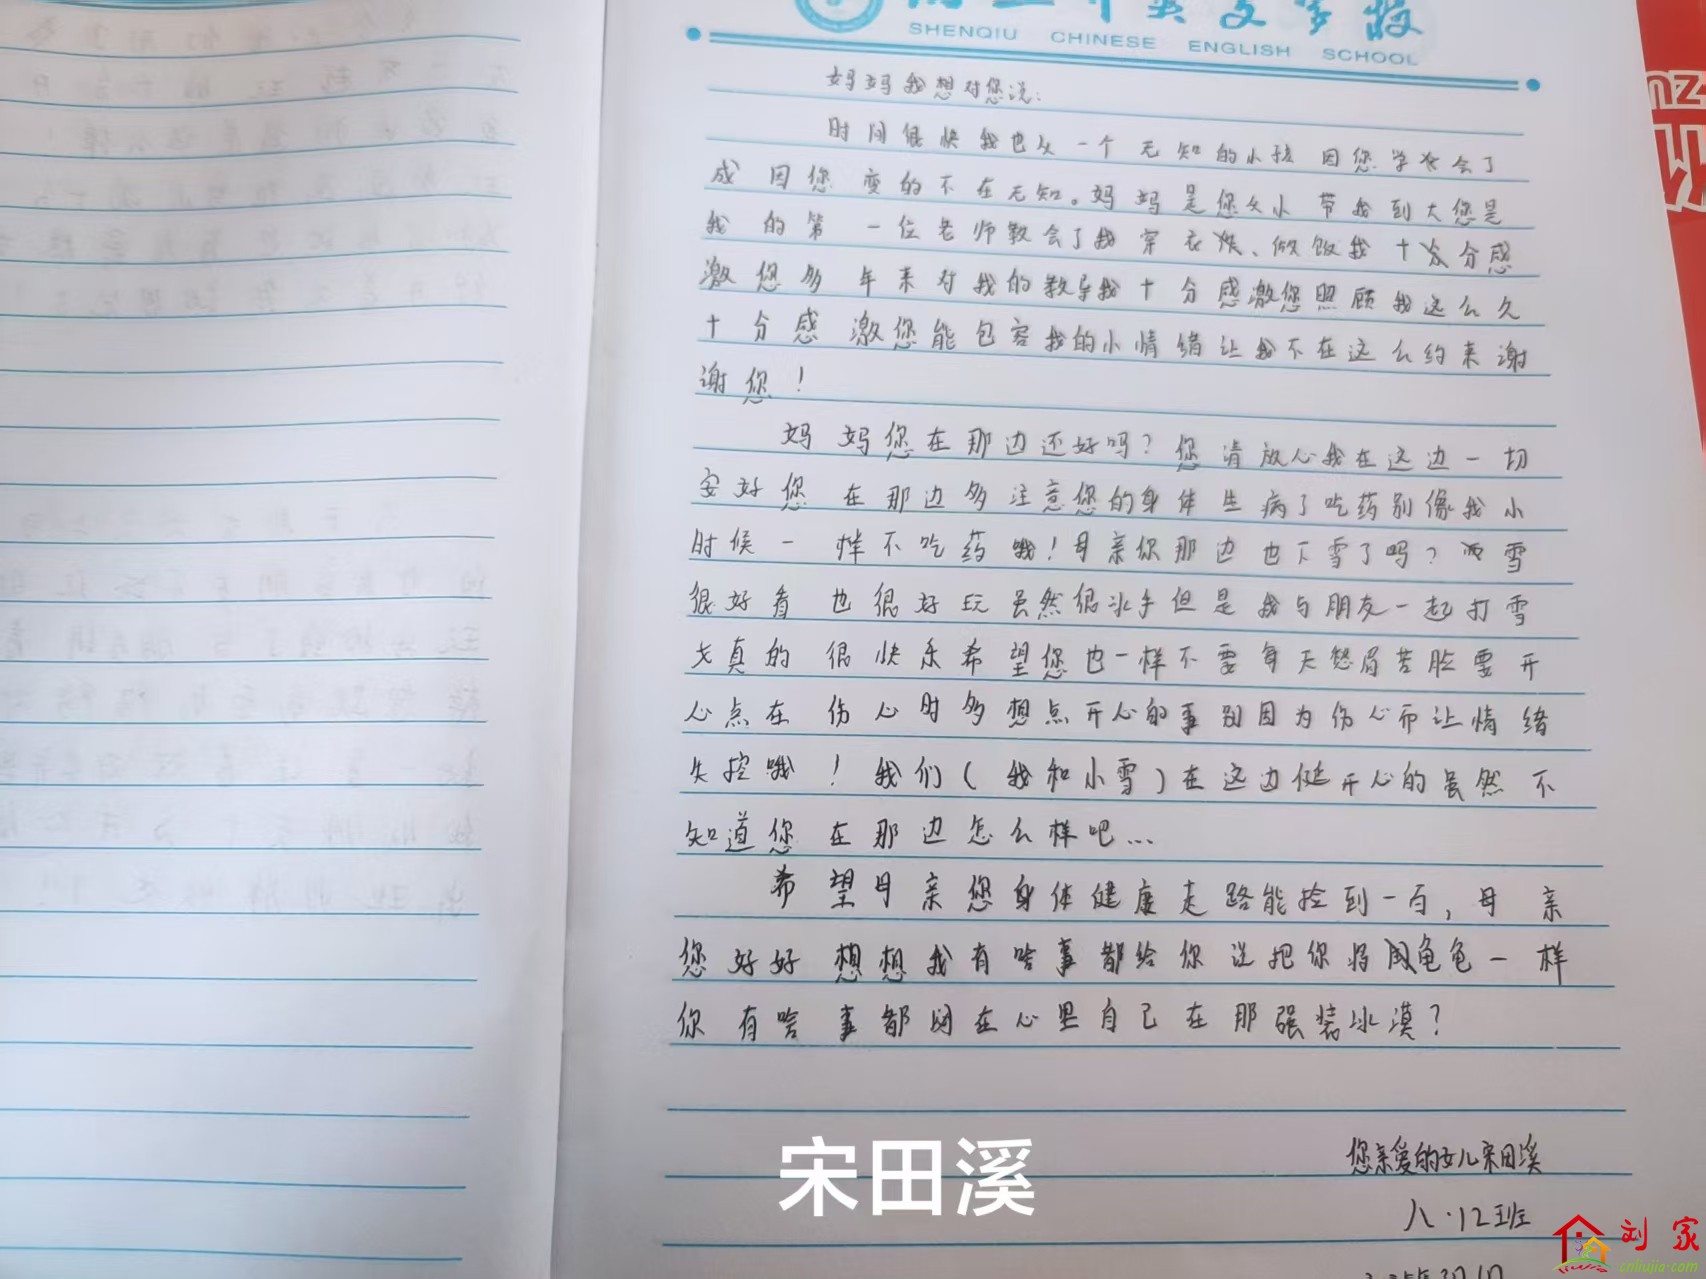 SHENQIU CHINESE ENGLISH SCHOOL
妈妈我想对您说：
时间很快我也从一个无知的小孩因您学会了
成因您变的不在无知。妈妈是您从小带我到大您是
我的第一位老师教会了我穿衣、做饭我十分感
激您多年来对我的教导我十分感激您照顾我这么久
十分感激您能包容我的小情绪让我不在这么约束谢
谢您！
妈妈您在那边还好吗？您请放心我在这边一切
安好您在那边多注意您的身体生病了吃药别像我小
时候一样不吃药哦！母亲你那边也下雪了吗？雪
很好看也很好玩虽然很冰手但是我与朋友一起打雪
丈真的很快乐希望您也一样不要每天愁眉苦脸要开
心点在伤心时多想点开心的事别因为伤心而让情绪
失控哦！我们（我和小雪）在这边挺开心的虽然不
知道您在那边怎么样吧…
希望母亲您身体健康走路能捡到一百，母亲
您好好想想我有啥事都给你说把你当龟龟一样
你有啥事都闷在心里自己在那强装冰漠？
您亲爱的女儿宋田溪
八·12班
宋田溪
刘家
cnliujia.com